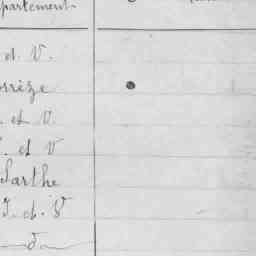 partement
et V.
orrèze
et V
et V
Sarthe
I. et V
do